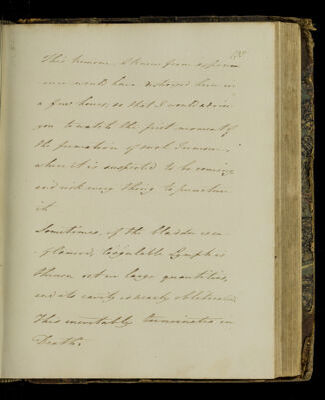 This tumour, I know from experi
ence would have destroyed him in
a few hours, so that I would advise
you to watch the first moment of
the formation of such Tumour,
when it is suspected to be coming
and risk every thing to puncture
it
Sometimes, if the Bladder is
inflamed, Coagulable Lymph is
thrown out in large quantities,
and its cavity is nearly obliterated
This inevitably terminates in
Death.